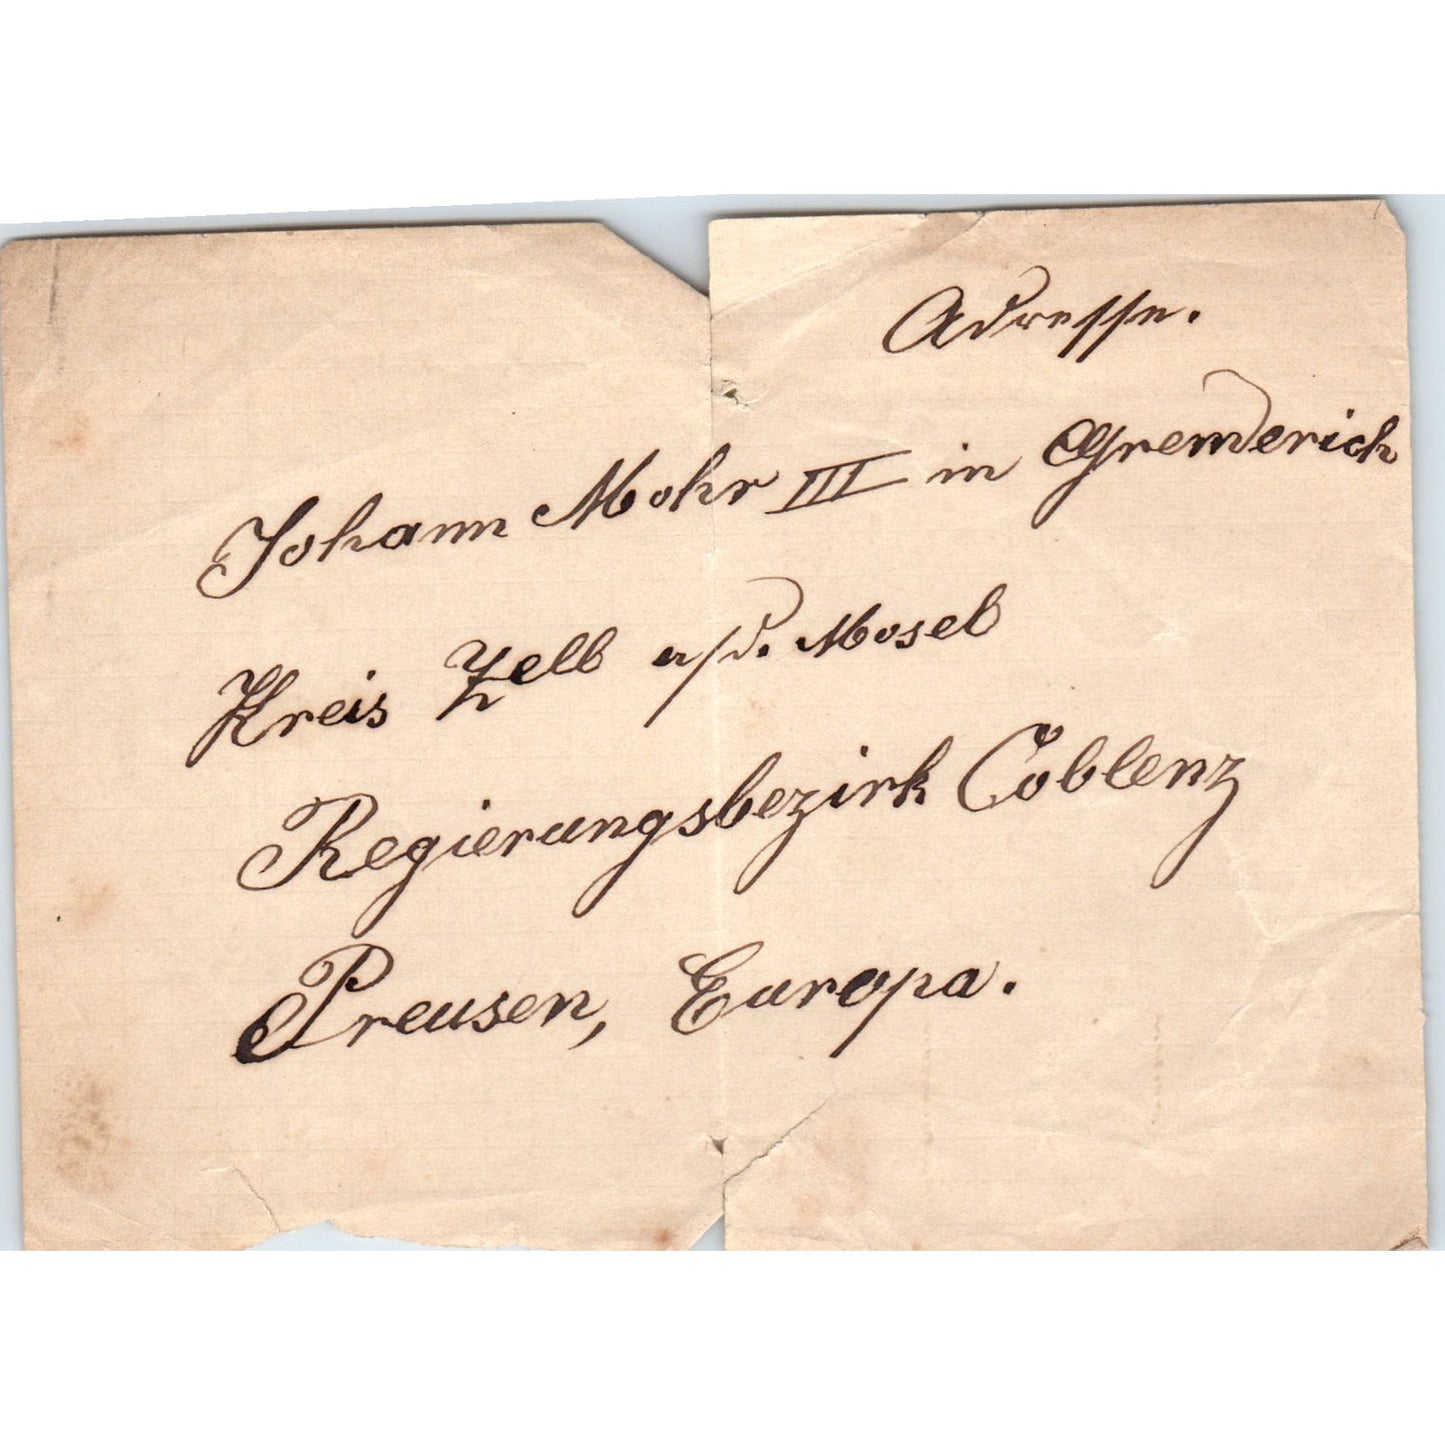 Adresse.
Johann Mohr III in Gremderich
Kreis Zell a/d. Mosel
Regierungsbezirk Coblenz
Preusen, Europa.